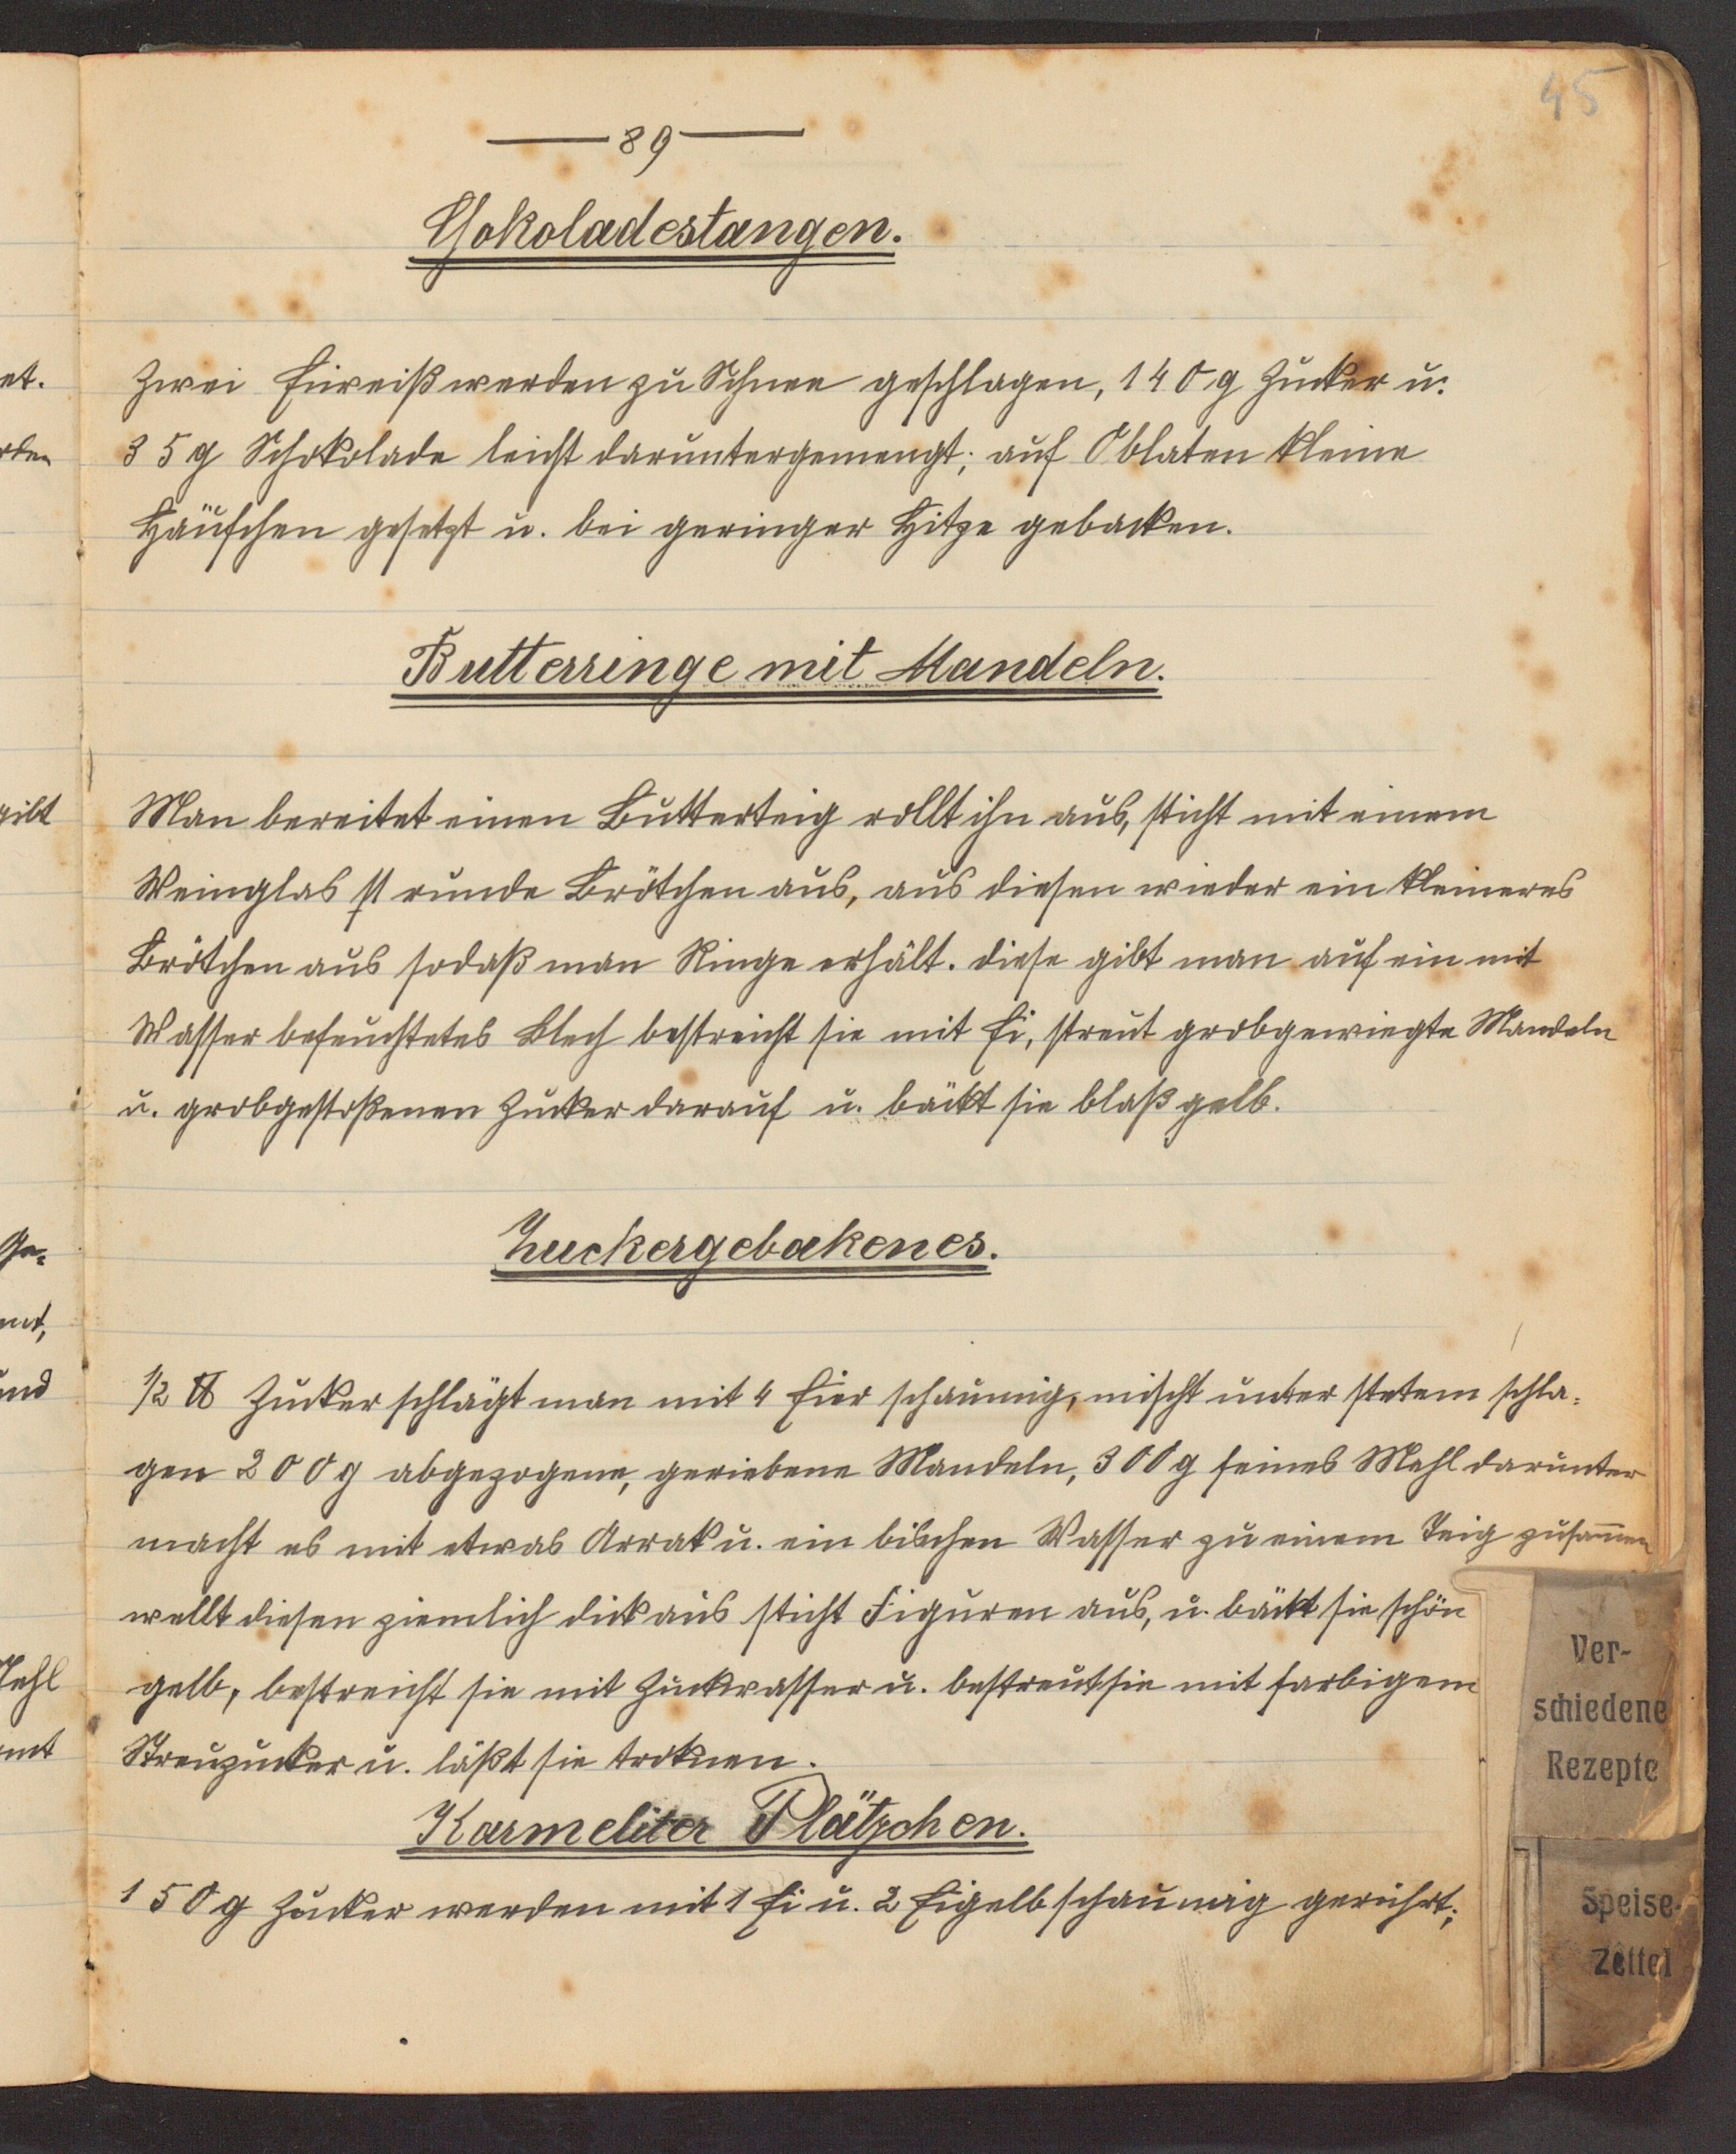 45
89
Chokoladestangen.
Zwei Eiweiß werden zu Schnee geschlagen, 140 g Zucker u.
35 g Schokolade leicht daruntergemengt; auf Oblaten kleine
Häufchen gesetzt u. bei geringer Hitze gebacken.
Butterringe mit Mandeln.
Man bereitet einen Butterteig rollt ihn aus, sticht mit einem
Weinglas runde Brötchen aus, aus diesen wieder ein kleineres
Brötchen aus sodaß man Ringe erhält. diese gibt man auf ein mit
Wasser befeuchtetes Blech bestreicht sie mit Ei, streut grobgewiegte Mandeln
u. grobgestoßenen Zucker darauf u. bäckt sie blaßgelb.
Zuckergebakenes.
1/2 ℔ Zucker schlägt man mit 4 Eier schaumig, mischt unter stetem schla-
gen 200 g abgezogene, geriebene Mandeln, 300 g feines Mehl darunter
macht es mit etwas Arrak u. ein bischen Wasser zu einem Teig zusammen
wellt diesen ziemlich dick aus sticht Figuren aus, u. bäckt sie schön
gelb, bestreicht sie mit Zuckwasser u. bestreut sie mit farbigem
Streuzucker u. läßt sie troknen.
Karmeliter Plätzchen.
150 g Zucker werden mit 1 Ei u. 2 Eigelb schaumig gerührt;
Ver-
schiedene
Rezepte
Speise-
Zettel
et.
rden
gibt
Ge-
mt,
und
Mehl
mt